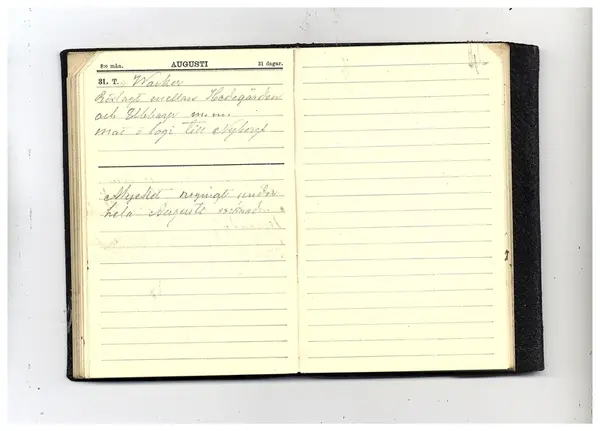 8:e mån. AUGUSTI 31 dagar.
31. T. Vacker
mellan Hodegården
och m.m.
mat o logi till Nyborgs
Mycket regnigt under
hela Augusti månad